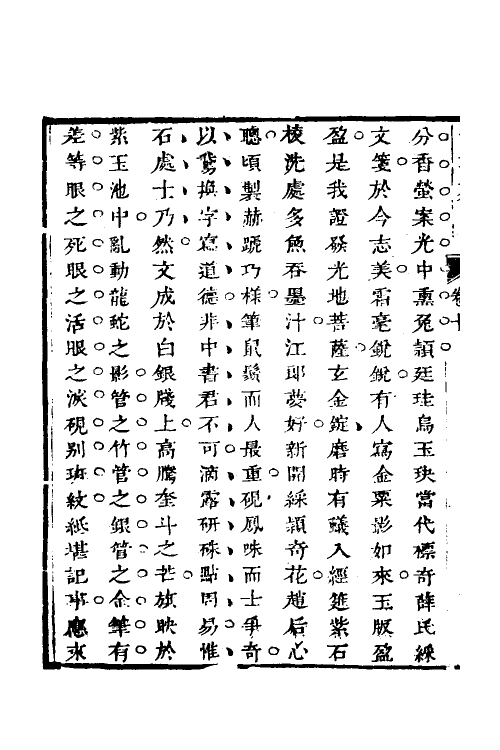 分香螢案光中熏兔頴廷珪烏玉玦當代標奇薛民綵
文箋於今志美霜毫銳銳有人寫金粟影如來玉版盈
盈是我證發光地菩薩玄金錠磨時有蟻入經筵紫石
棱洗處多魚吞墨汁江郎夢好新開綵頴奇花趙后心
聰頃製赫蹏巧樣筆鼠鬚而人最重硯鳳咮而士爭奇
以鵞換字寫道德非中書君不可滴露研硃點周易惟
石處士乃然文成於白銀牋上高騰奎斗之芒旗映於
紫玉池中亂動龍蛇之影管之竹管之銀管之金筆有
差等眼之死眼之活眼之淚硯别斑紋紙堪記事應來
卷十